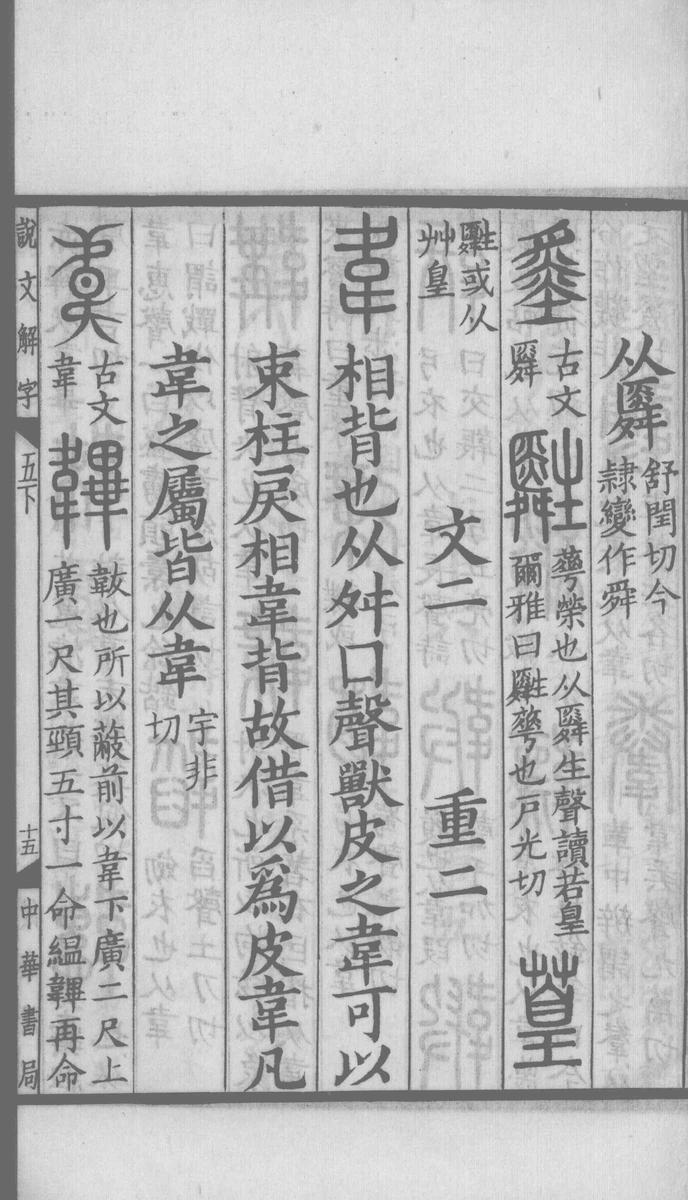 从䑞 舒閏切今
隸變作舜
古文
䑞
䑟 蕐榮也从䑞生聲讀若皇
爾雅曰䑟蕐也戶光切
葟
䑟或从
艸皇
文二 重二
韋 相背也从舛口聲獸皮之韋可以
束柱戾相韋背故借以爲皮韋凡
韋之屬皆从韋 宇非
切
古文
韋
韠 韍也所以蔽前以韋下廣二尺上
廣一尺其頸五寸一命縕韠再命
說文解字 五下 十五 中華書局